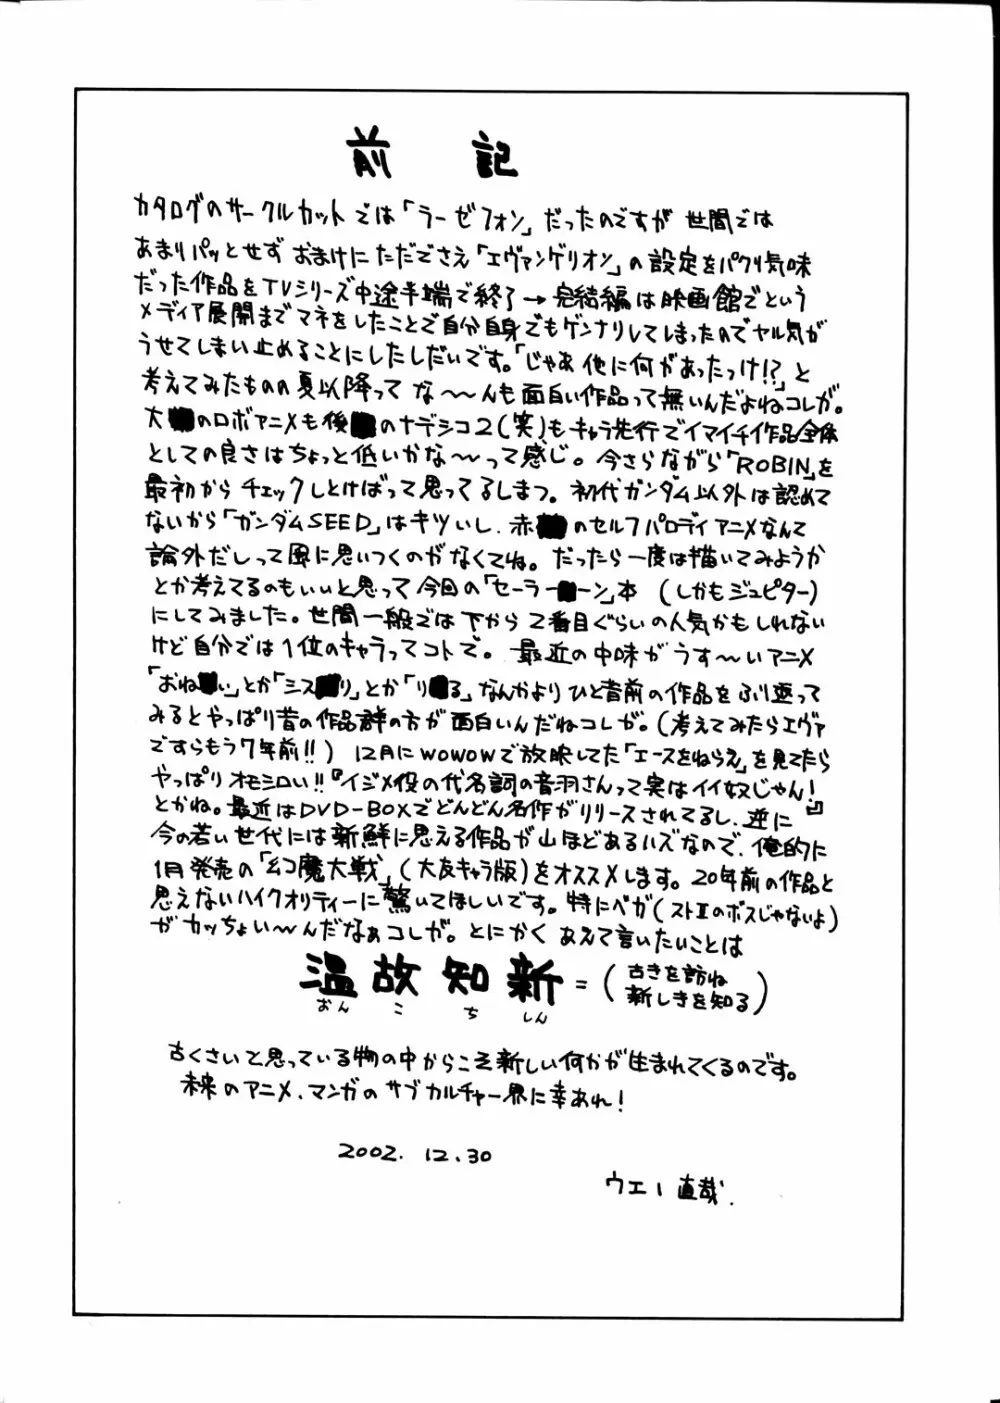 前記
カタログのサークルカットでは「ラーゼフォン」だったのですが 世間では
あまりパッとせず おまけにただでさえ「エヴァンゲリオン」の設定をパクリ気味
だった作品をTVシリーズ中途半端で終了→完結編は映画館でという
メディア展開までマネをしたことで自分自身でもゲンナリしてしまったのでヤル気が
うせてしまい止めることにしたしだいです。「じゃあ他に何があったっけ!?」と
考えてみたものの夏以降って な〜〜んも面白い作品って無いんだよねコレが。
大のロボアニメも後のナデシコ2(笑)もキャラ先行でイマイチ作品全体
としての良さはちょっと低いかな〜〜って感じ。今さらながら「ROBIN」を
最初からチェックしとけばって思ってるしまつ。初代ガンダム以外は認めて
ないから「ガンダムSEED」はキツいし、赤のセルフパロディアニメなんて
論外だしって風に思いつくのがなくてね。だったら一度は描いてみようか
とか考えてるのもいいと思って今回の「セーラーーン」本 (しかもジュピター)
にしてみました。世間一般では下から2番目ぐらいの人気かもしれない
けど自分では1位のキャラってコトで。最近の中味がうす〜いアニメ
「おねい」とか「シスり」とか「りる」なんかよりひと昔前の作品をふり返って
みるとやっぱり昔の作品群の方が面白いんだねコレが。(考えてみたらエヴァ
ですらもう7年前!!) 12月にWOWOWで放映してた「エースをねらえ」を見てたら
やっぱりオモシロい!!『イジメ役の代名詞の音羽さんって実はイイ奴じゃん!』
とかね。最近はDVD-BOXでどんどん名作がリリースされてるし、逆に
今の若い世代には新鮮に思える作品が山ほどあるハズなので、俺的に
1月発売の「幻魔大戦」(大友キャラ版)をオススメします。20年前の作品と
思えないハイクオリティーに驚いてほしいです。特にベガ(ストIIのボスじゃないよ)
がカッちょい〜んだなぁコレが。とにかくあえて言いたいことは
温故知新=(古きを訪ね
新しきを知る)
おんこちしん
古くさいと思っている物の中からこそ新しい何かが生まれてくるのです。
未来のアニメ、マンガのサブカルチャー界に幸あれ!
2002.12.30
ウエー直哉.